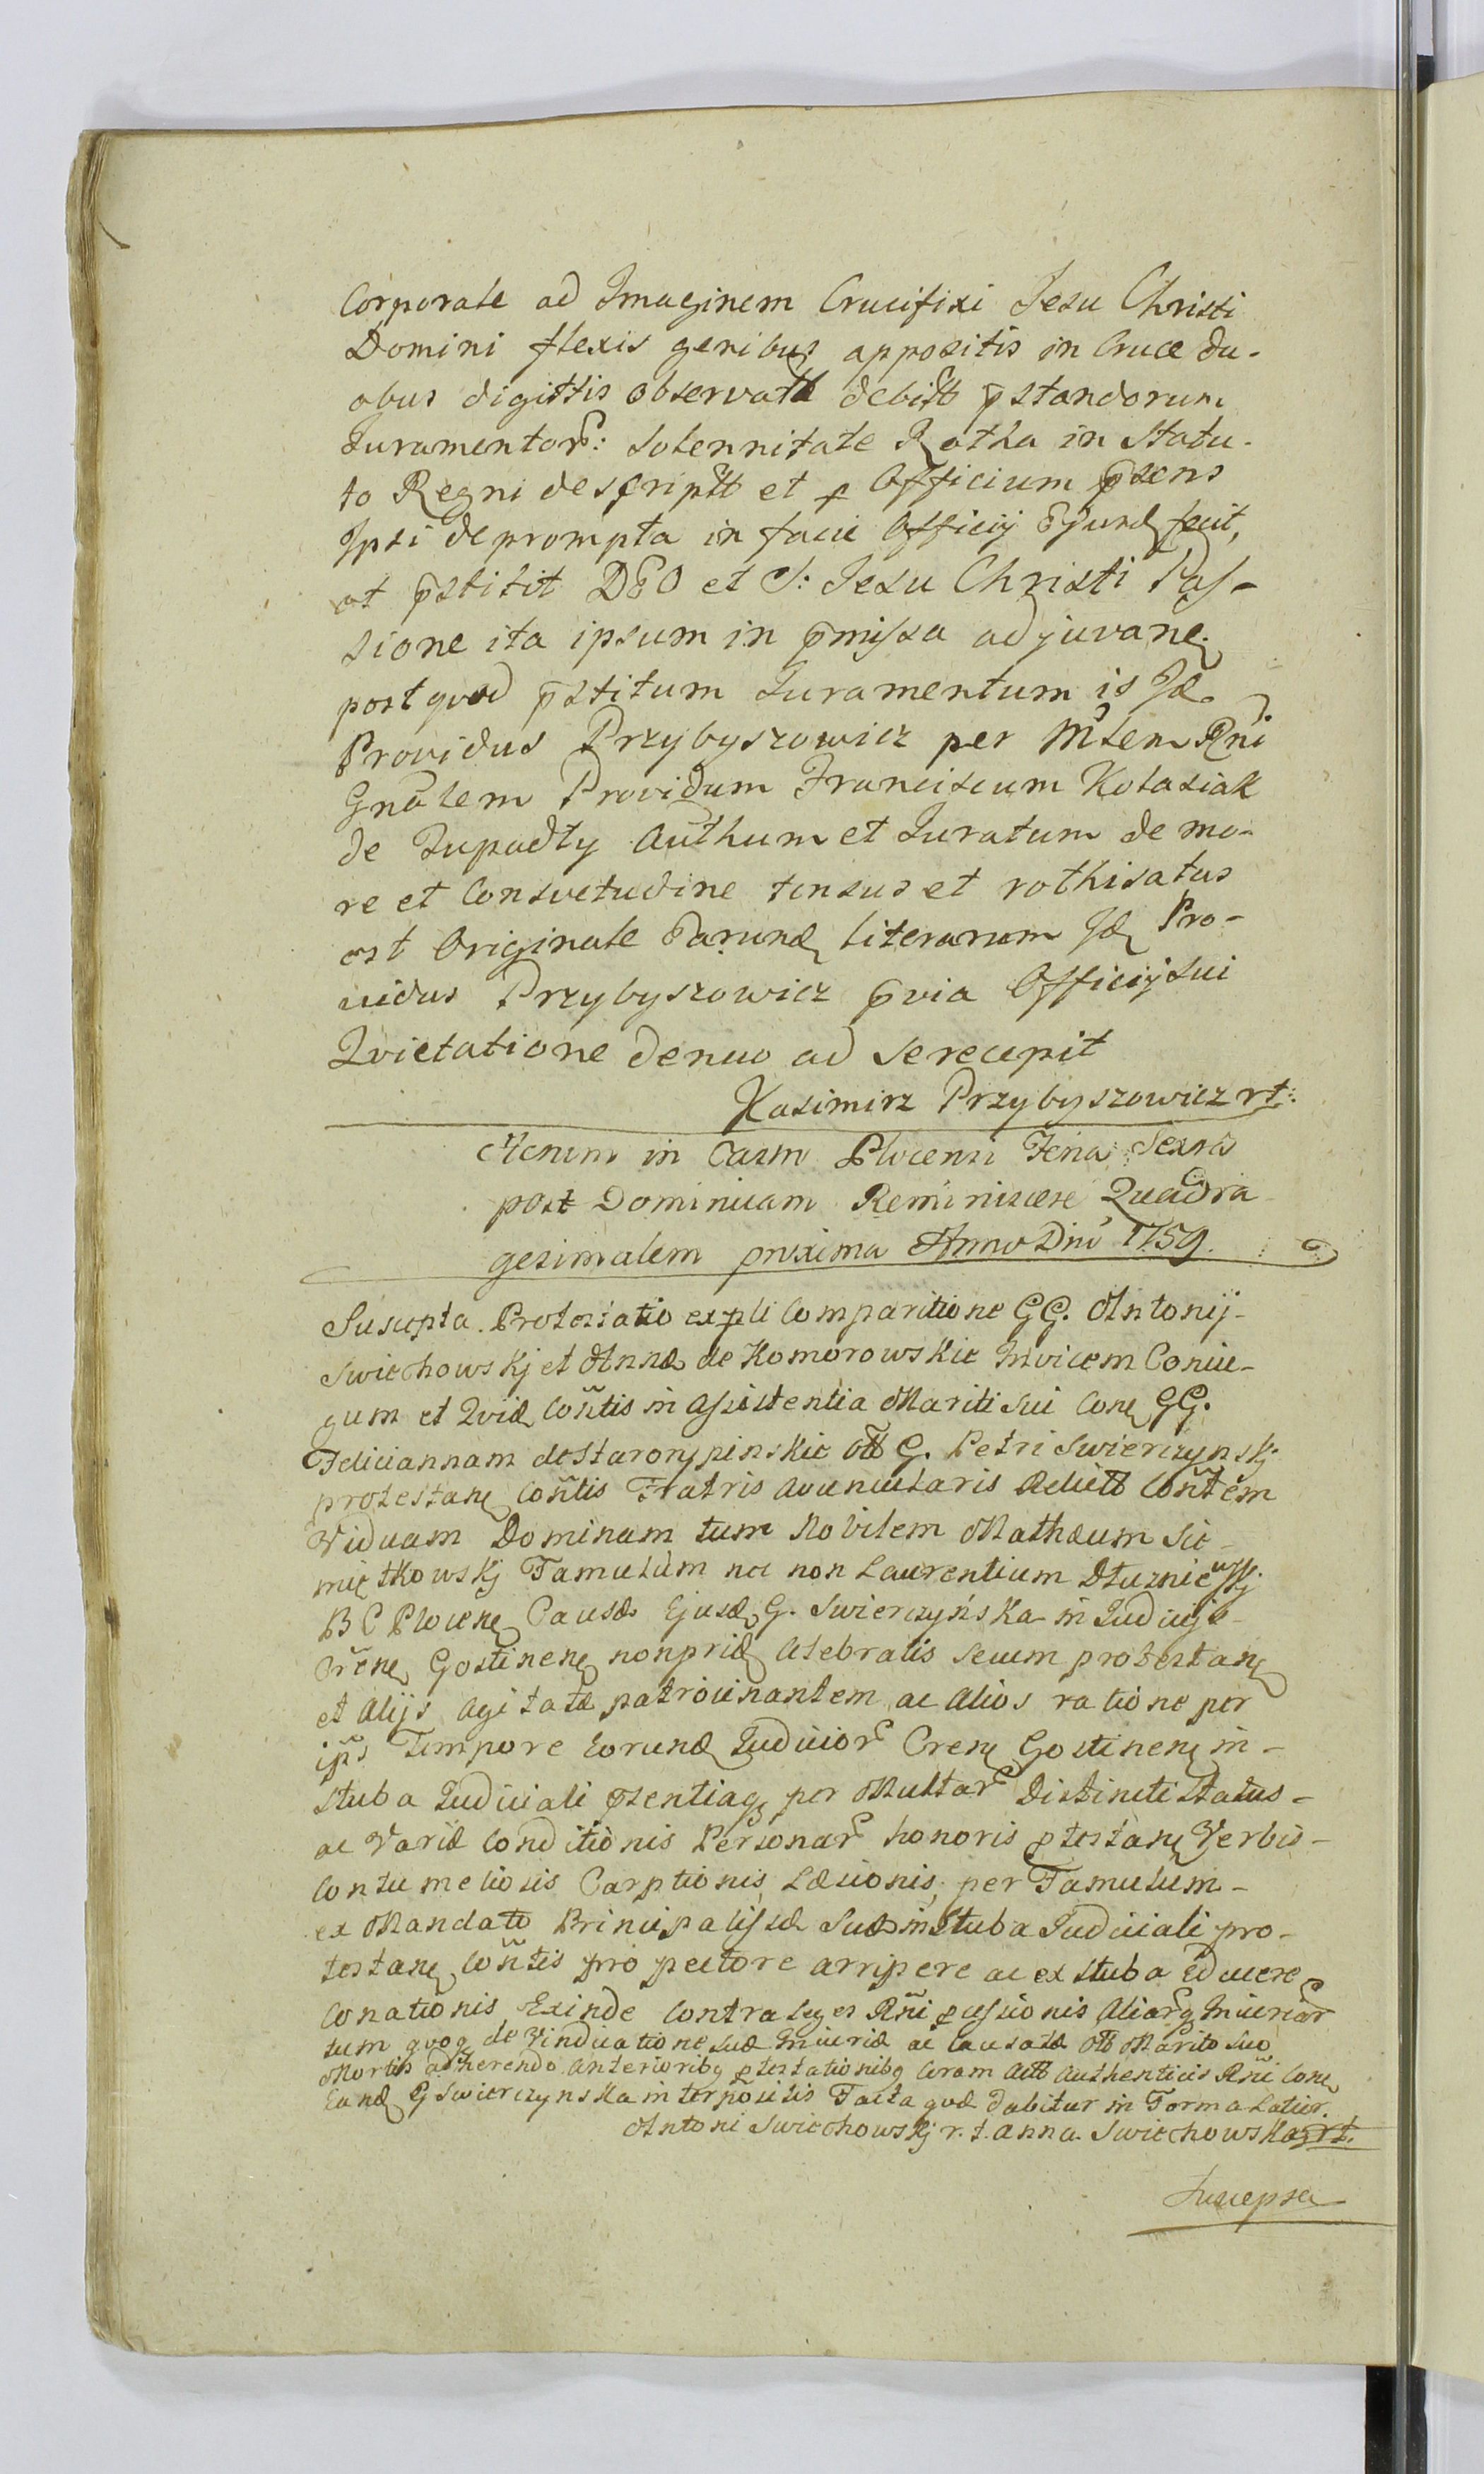 Corporale ad Imaginem Crucifixi Jesu Christi
Domini flexis genibus appositis in Cruce du-
obus digittis observatâ debitt p̄standorum
Juramentor: Solennitate Rotha in Statu-
to Regni descriptt et p Officium p̄sens
Ipsi deprompta in facie Officij Ejusd fecit,
at p̄stitit DEO et S: Jesu Christi Pas-
sione ita ipsum in p̄missa adjuvane.
post qvod p̄stitum Juramentum is Id
Providus Przybyszowicz per Mstem Rni
Gnãlem Providum Franciscum Kolasiak
de Zupadty Authum et Juratum de mo-
re et Consvetudine tensus et rothisatus
est Originale Earund literarum Id Pro-
uidus Przybyszowicz p̄via Officij Sui
Qvietatione denuo ad se recepit
Kasimirz Przybyszowicz rt:
Actum in Castro Plocensi Feria Sexta
post Dominicam Reminiscere Quadra
gesimalem proxima Anno Dni 1759.
Suscepta Protestatio ex pli Comparitione GG. Antonij
Swiechowskj et Annæ de Komorowskie Invicem Coniu-
gum et Qvid Con̄tis in Assistentia Mariti Sui Con GG.
Feliciannam de Starorypinskie Ott G. Petri Swierczynskj
protestan con̄tis Fratris Avuncularis Relictt Con̄tem
Viduam Dominam tum Nobilem Mathæum Sie-
miętkowskj Famulum nec non Laurentium Dłuzniewskj
B C Plocen Causæ Ejusd G. Swierczyńska in Judicijs
Cr̃en Gostinen non prid Celebratis Secum protestan
et Alijs Agitatæ patrocinantem ac Alios ratione per
ip̃s Tempore Eorund Judicior Cren Gostinen in
Stuba Judiciali p̄sentiaq per Multar Distincti Status
ac Variæ Conditionis Personar honoris ptestan Verbis
Contumeliosis Carptionis, Læsionis, per Famulum
ex Mandato Principalissæ Suæ in Stuba Judiciali pro-
testan Con̄tis pro pectore arripere ac ex Stuba Educere
Conationis Exinde Contra leges Rñi pcussionis Aliarq Iniuriar
tum qvoq de Vinduatione Suæ Iniuriæ ac Causatæ Ott Marito Suo
Mortis adherendo Anterioribq ptestationibq Coram Actt Authenticis Rñi Con
Eand G Swierczynska interpositis Facta qvæ dabitur in Forma Latior.
Antoni Swiechowskj r. t. Anna Swiechowska rt.
Suscepta